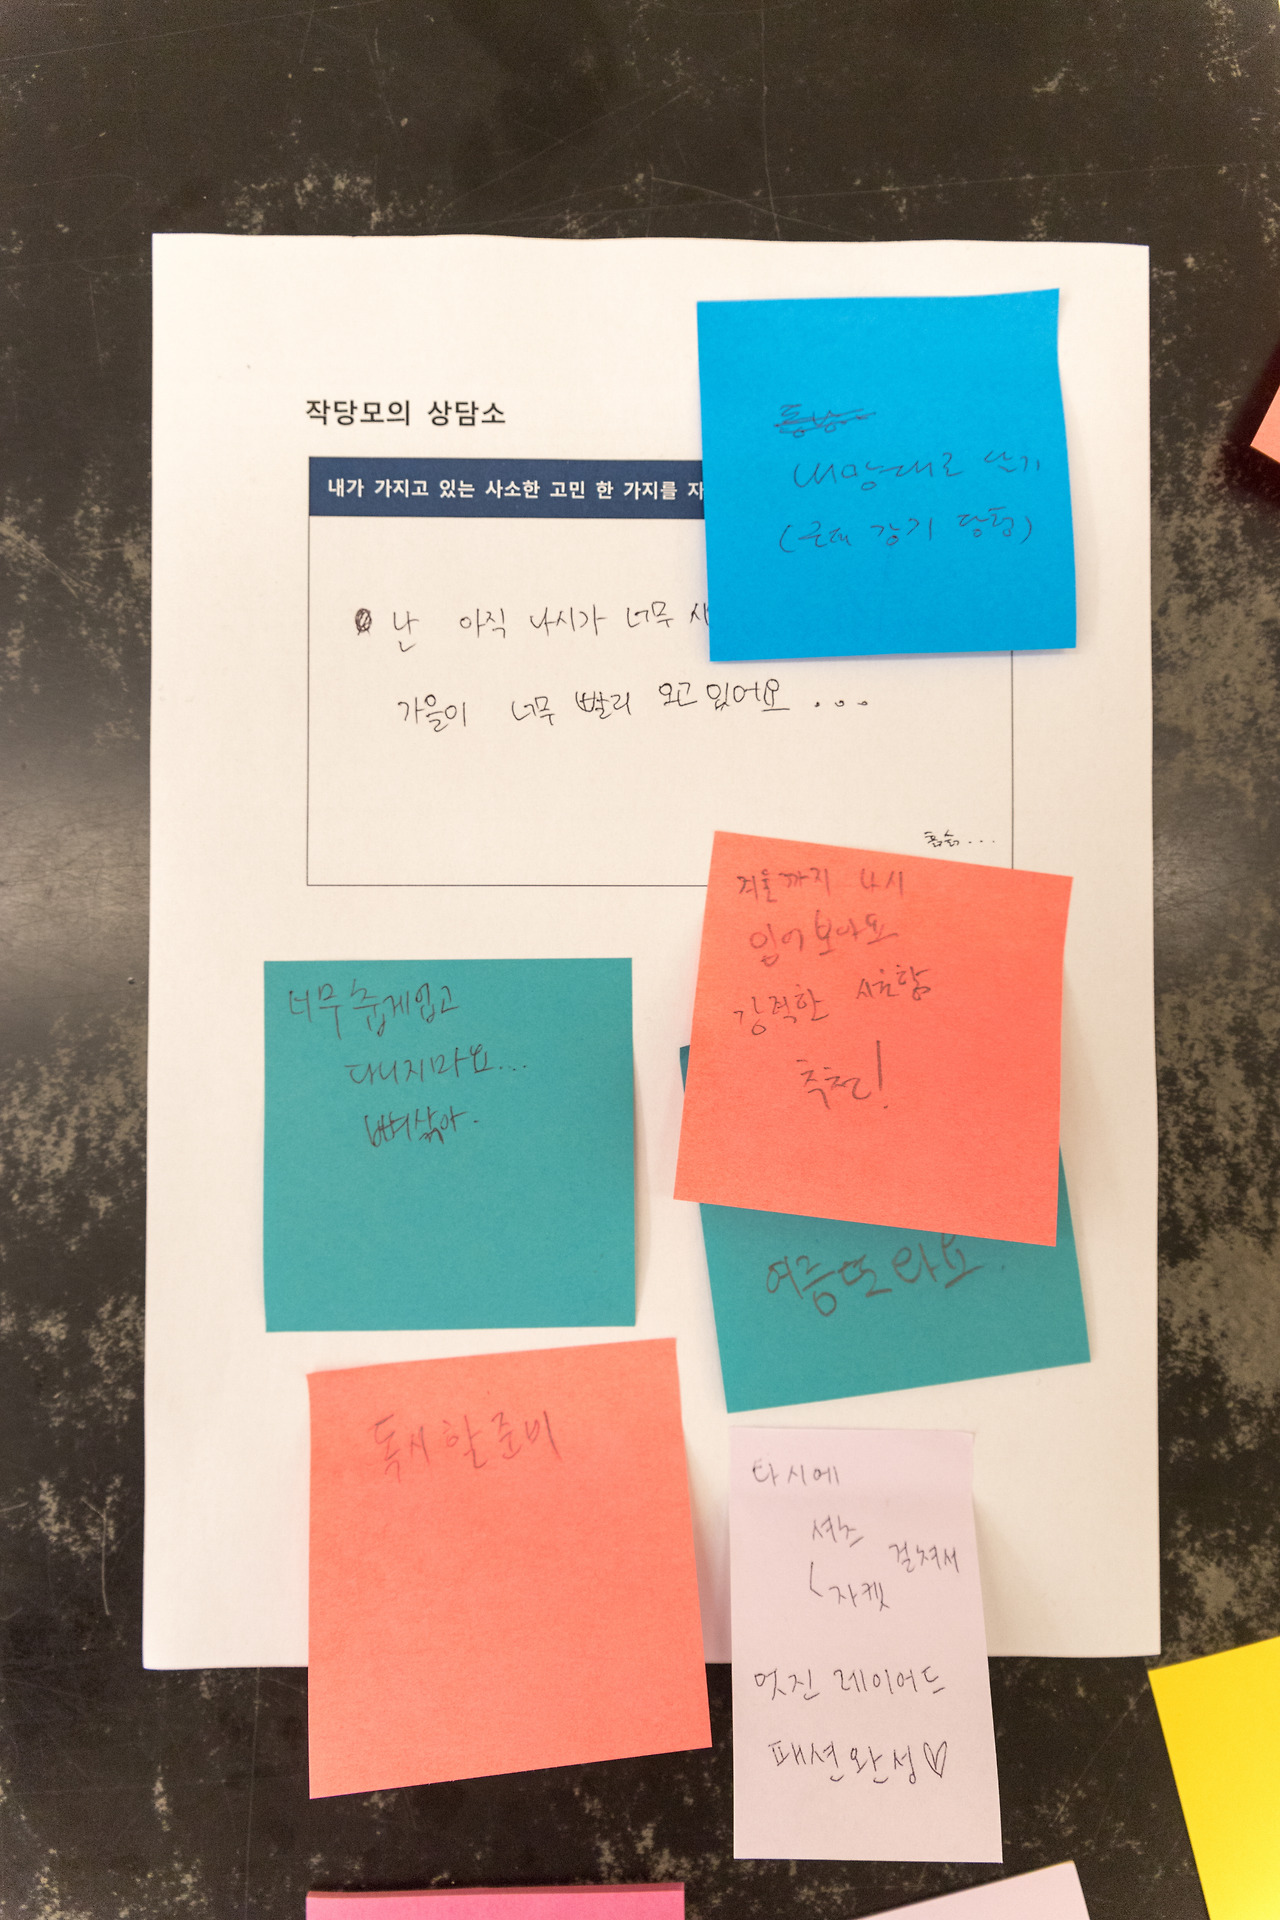 작당모의 상담소
내가 가지고 있는 사소한 고민 한 가지를
내맘대로 살기
(근데 감기 당첨)
난 아직 나시가 너무
가을이 너무 빨리 오고있어요 ...
흡슭...
겨울까지 나시
입어보아요
강력한 시원함
추천!
너무 춥게입고
다니지마요...
뼈삭아.
여름또와요.
독서할준비
나시에
셔츠
자켓 걸쳐서
멋진 레이어드
패션완성♡